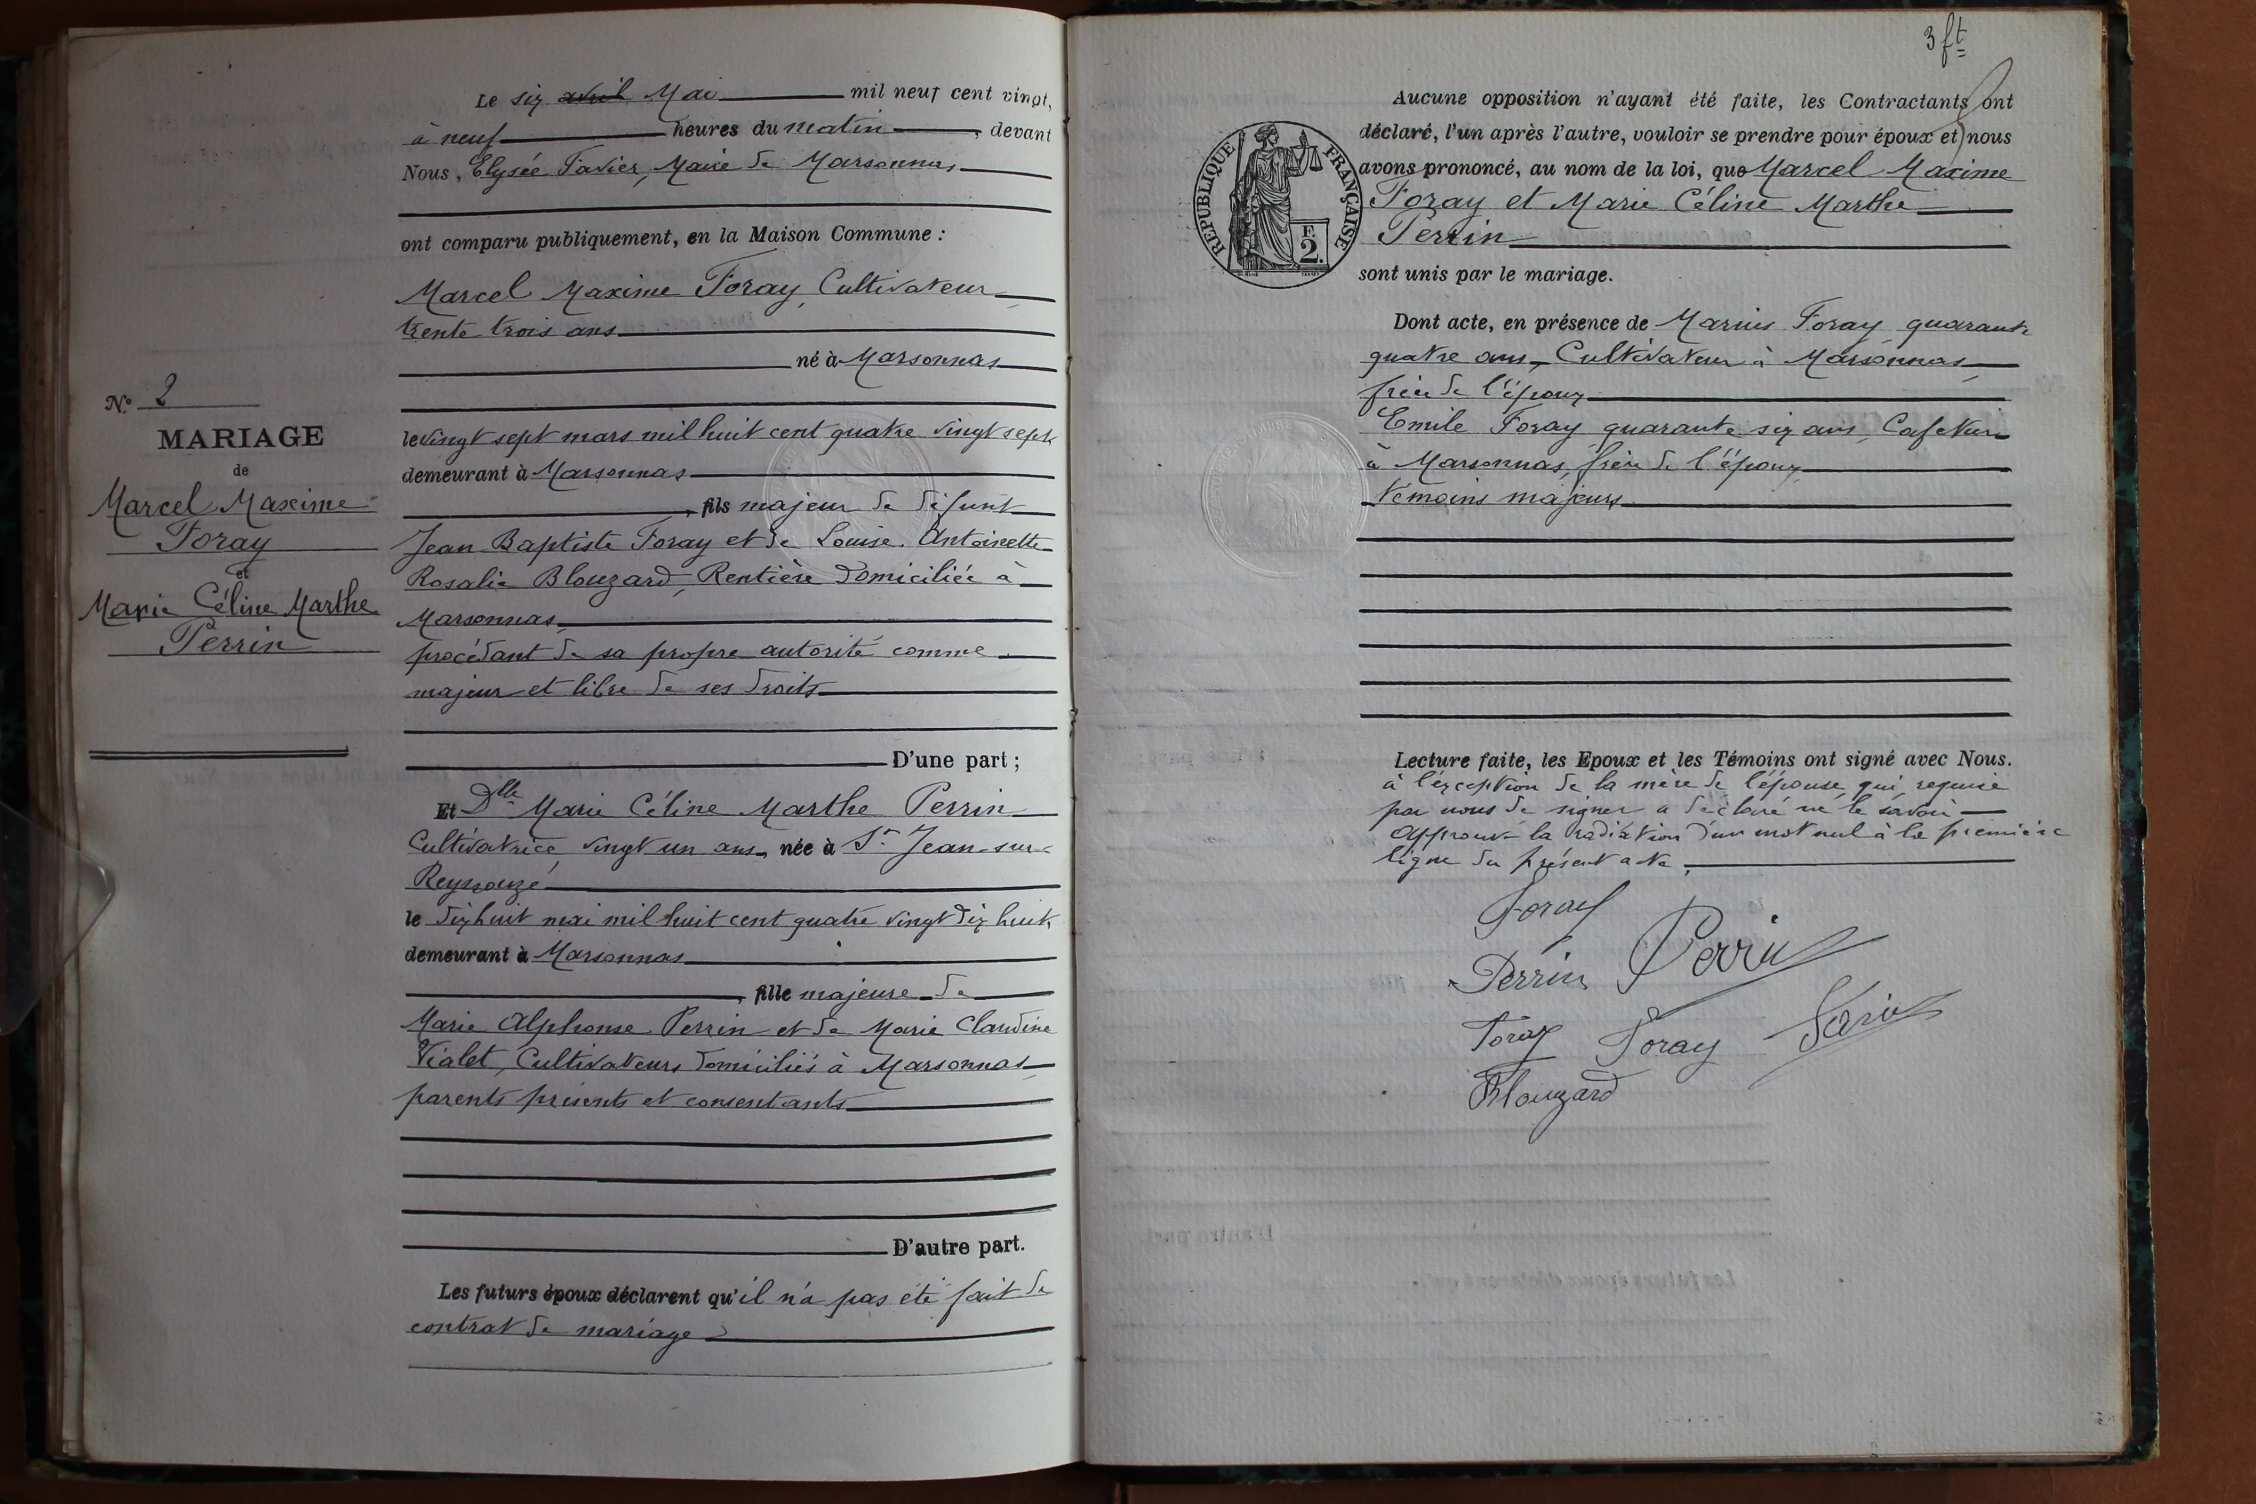 Le six avril Mai mil neuf cent vingt,
à neuf heures du matin, devant
Nous, Elysée Favier, Maire de Marsonnas,
ont comparu publiquement, en la Maison Commune :
Marcel Maxime Foray, Cultivateur
trente trois ans
né à Marsonnas
le vingt sept mars mil huit cent quatre vingt sept
demeurant à Marsonnas
, fils majeur de défunt
Jean Baptiste Foray et de Louise Antoinette
Rosalie Blouzard, Rentière domiciliée à
Marsonnas,
procédant de sa propre autorité comme
majeur et libre de ses droits
D'une part ;
N.° 2
MARIAGE
de
Marcel Maxime
Foray
et
Marie Céline Marthe
Perrin
Et Dlle Marie Céline Marthe Perrin
Cultivatrice, vingt un ans, née à St Jean-sur-
Reyssouze
le dix huit mai mil huit cent quatre vingt dix huit
demeurant à Marsonnas
, fille majeure de
Marie Alphonse Perrin et de Marie Claudine
Vialet, Cultivateurs domiciliés à Marsonnas,
parents présents et consentants
D'autre part.
Les futurs époux déclarent qu'il n'a pas été fait de
contrat de mariage
3 ft
Aucune opposition n'ayant été faite, les Contractants ont
déclaré, l'un après l'autre, vouloir se prendre pour époux et nous
avons prononcé, au nom de la loi, que Marcel Maxime
Foray et Marie Céline Marthe
Perrin
sont unis par le mariage.
REPUBLIQUE FRANÇAISE
F.
2.
Dont acte, en présence de Marius Foray quarante
quatre ans, Cultivateur à Marsonnas,
frère de l'époux
Emile Foray quarante six ans, Cafetier
à Marsonnas, frère de l'époux,
témoins majeurs
Lecture faite, les Epoux et les Témoins ont signé avec Nous.
à l'exception de la mère de l'épouse qui requise
par nous de signer a déclaré ne le savoir
Approuvé la radiation d'un mot nul à la première
ligne du présent acte.
Foray
Perrin Perrin
Foray Foray Favier
Blouzard